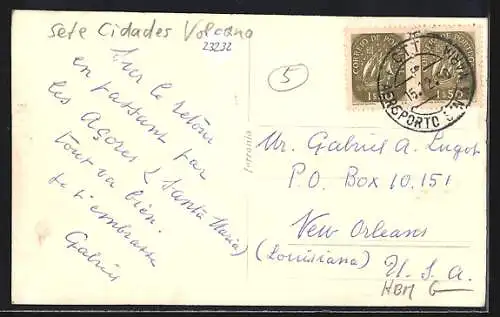 Sete Cidades Volcano
23232
5
CORREIO DE PORTUGAL
1$50
1$50
C.T.T.
15.
AEROPORTO S.TA MARIA
ferrania
Sur le retour
en passant par
les Açores (Santa Maria)
tout va bien.
Je t'embrasse
Gabriel
Mr. Gabriel A. Lugot
P.O. Box 10.151
New Orleans
(Louisiana) U.S.A.
HBM G